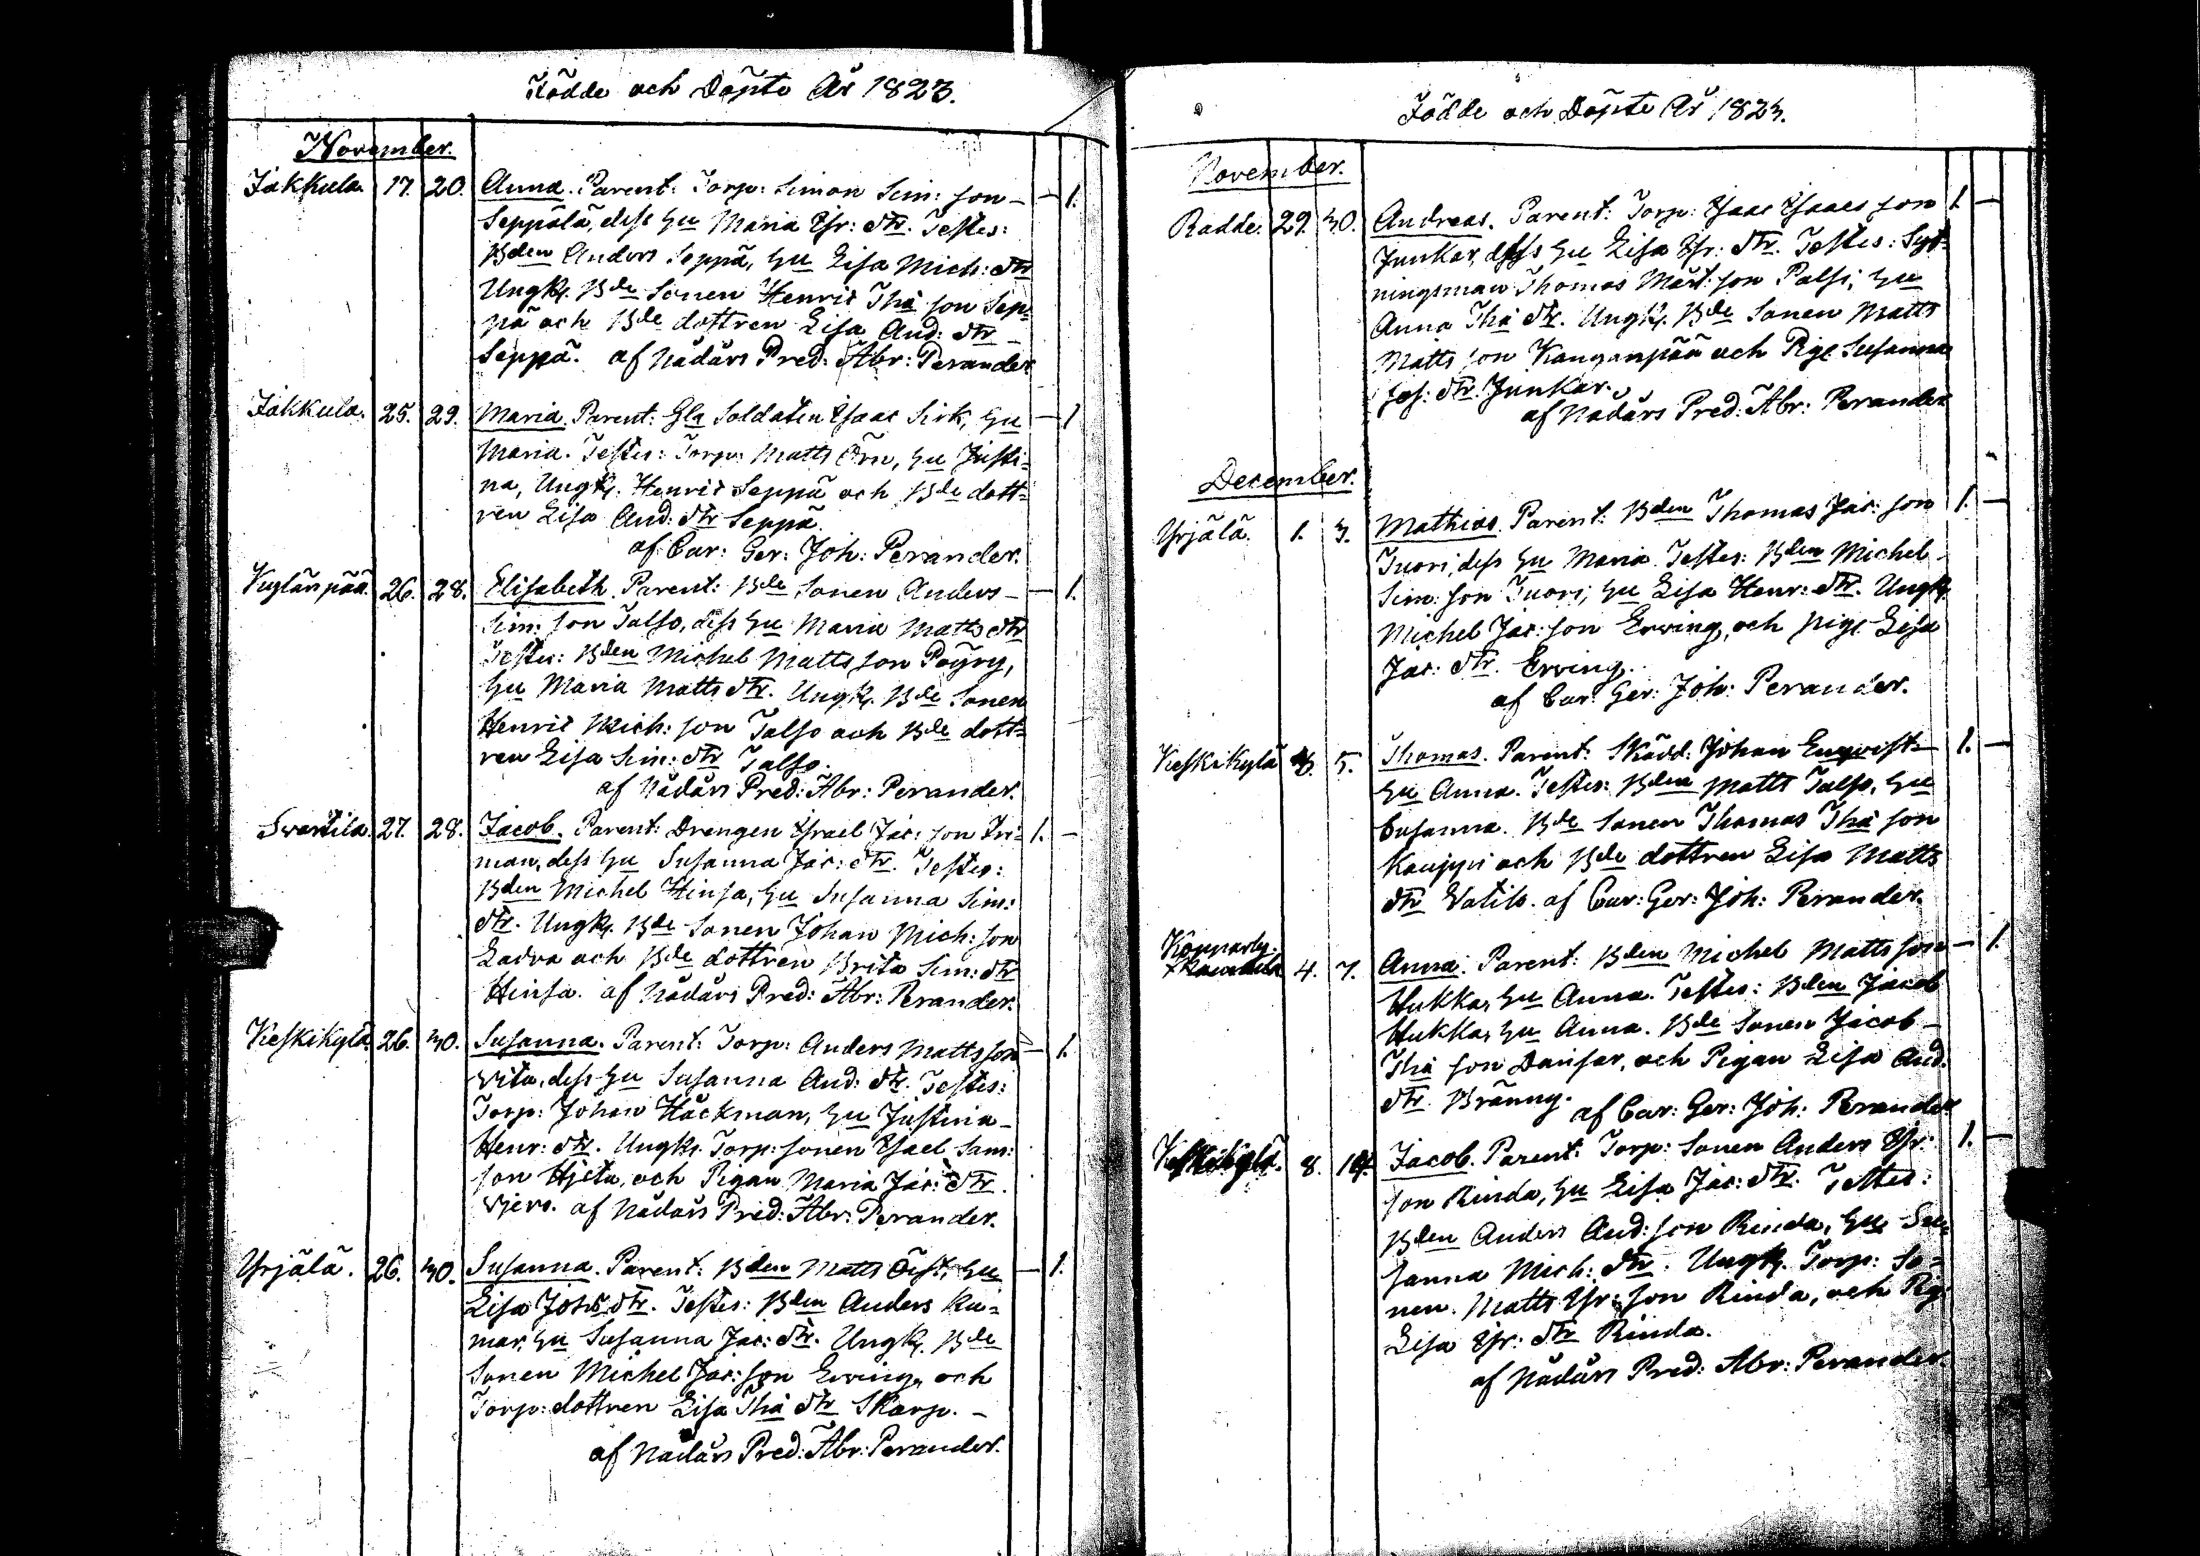 Födde och Döpte År 1823.
November.
Jakkula. 17. 20. Anna. Parent: Torp: Simon Sim: son — 1.
Seppälä, dess Hu Maria Isr: dtr. Testes:
Bden Anders Seppä, Hu Lisa Mich: dtr
Ungk. Bde Sonen Henric Tho: son Sep=
pä och Bde dottren Lisa And: dtr
Seppä. af Nådårs Pred: Abr: Perander
Jakkula. 25. 29. Maria. Parent: Gla Soldaten Isaac Sirk, Hu — 1
Maria. Testes: Torp: Matts Örn, Hu Justi=
na, Ungk. Henric Seppä och Bde dott=
ren Lisa And: dtr Seppä.
af Cur: Ger: Joh: Perander.
26. 28. Elisabeth. Parent: Bde Sonen Anders — 1.
Sim: son Talso, dess Hu Maria Matts dtr
Testes: Bden Michel Matts son Pöyry,
Hu Maria Matts dtr. Ungk. Bde Sonen
Henric Mich: son Talso och Bde dott=
ren Lisa Sim: dtr Talso.
af Nådårs Pred: Abr: Perander.
Svartila. 27. 28. Jacob. Parent: Drengen Israel Jac: son In= 1. —
man, dess Hu Susanna Jac: dtr. Testes:
Bden Michel Hinsa, Hu Susanna Sim:
dtr. Ungk. Bde Sonen Johan Mich: son
Ladva och Bde dottren Brita Sim: dtr
Hinsa. af Nådårs Pred: Abr: Perander.
Keskikylä. 26. 30. Susanna. Parent: Torp: Anders Matts son — 1.
Vita, dess Hu Susanna And: dtr. Testes:
Torp: Johan Hackman, Hu Justina
Henr: dtr. Ungk. Torp: sonen Isael Sam:
son Hjeta, och Pigan Maria Jac: dtr.
af Nådårs Pred: Abr: Perander.
Yrjälä. 26. 30. Susanna. Parent: Bden Matts Öist, Hu — 1.
Lisa Johs dtr. Testes: Bden Anders Ku=
mar, Hu Susanna Jac: dtr. Ungk. Bde
Sonen Michel Jac: son Erving, och
Torp: dottren Lisa Tho: dtr Skarp. —
af Nådårs Pred: Abr: Perander.
Födde och Döpte År 1823.
November.
Radde. 29. 30. Andreas. Parent: Torp: Isaac Isaacs son 1. —
Junkar, dess Hu Lisa Isr: dtr. Testes: Syt=
ningsman Thomas Mårt: son Palsi, Hu
Anna Tho: dtr. Ungk. Bde Sonen Matts
Matts son Kanganpää och Pig. Susanna
Jos: dtr. Junkar.
af Nådårs Pred: Abr: Perander
December.
Yrjälä. 1. 3. Mathias. Parent: Bden Thomas Jac: son 1. —
Tuori, dess Hu Maria. Testes: Bden Michel
Sim: son Tuori, Hu Lisa Henr: dtr. Ungk.
Michel Jac: son Erving, och pig. Lisa
Jac: dtr. Erving.
af Cur: Ger: Joh: Perander.
Keskikylä 5. Thomas. Parent: Skädd. Johan Enqvist — 1. —
Hu Anna. Testes: Bden Matts Talso, Hu
Susanna. Bde Sonen Thomas Tho: son
Kauppi och Bde dottren Lisa Matts
dtr Vatilo. af Cur: Ger: Joh: Perander.
4. 7. Anna. Parent: Bden Michel Matts son — 1.
Hukka, Hu Anna. Testes: Bden Jacob
Hukka, Hu Anna. Bde Sonen Jacob
Tho: son Dansar, och Pigan Lisa And:
dtr. Bränny.
af Cur: Ger: Joh: Perander
Keskikylä. 8. 14. Jacob. Parent: Torp: Sonen Anders Isr: 1. —
son Rinda, Hu Lisa Jac: dtr. Testes:
Bden Anders And: son Rinda, Hu Su=
sanna Mich: dtr. Ungk. Torp: So=
nen Matts Isr: son Rinda, och Pig:
Lisa Isr: dtr Rinda.
af Nådårs Pred: Abr: Perander.